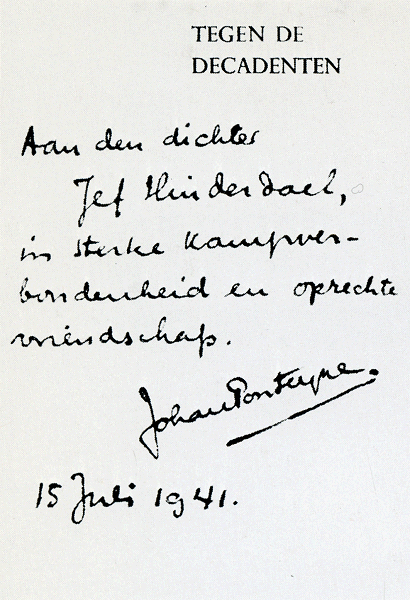 TEGEN DE
DECADENTEN
Aan den dichter
Jef Hinderdael,
in sterke kampver-
bondenheid en oprechte
vriendschap.
Johan Ponteyne.
15 Juli 1941.